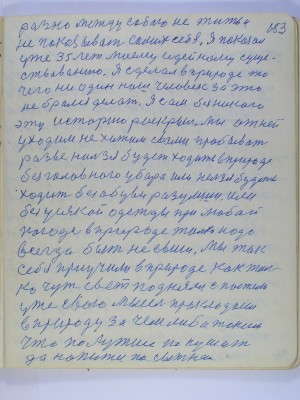 разно между собою не жить и 153
не показывать самих себя, я показал
уже 35 лет моему идейному суще-
ствованию. Я сделал в природе то
чего ни один наш человек за это
не брался делать. Я сам бы никого
эту историю раскрыл. Мы от ней
уходим не хотим с этим пробывать
разве нельзя будет ходить в природе
без головного убора или нельзя будет
ходить без обуви разумши. или
без узкой одежды при любой
погоде в природе только надо
всегда быть не своим. Мы так
себя приучили в природе как толь-
ко чуть свет поднялись с постели
уже свою мысел прокладаем
в природу за чем либо таким
что получше покушать
да попити послаже